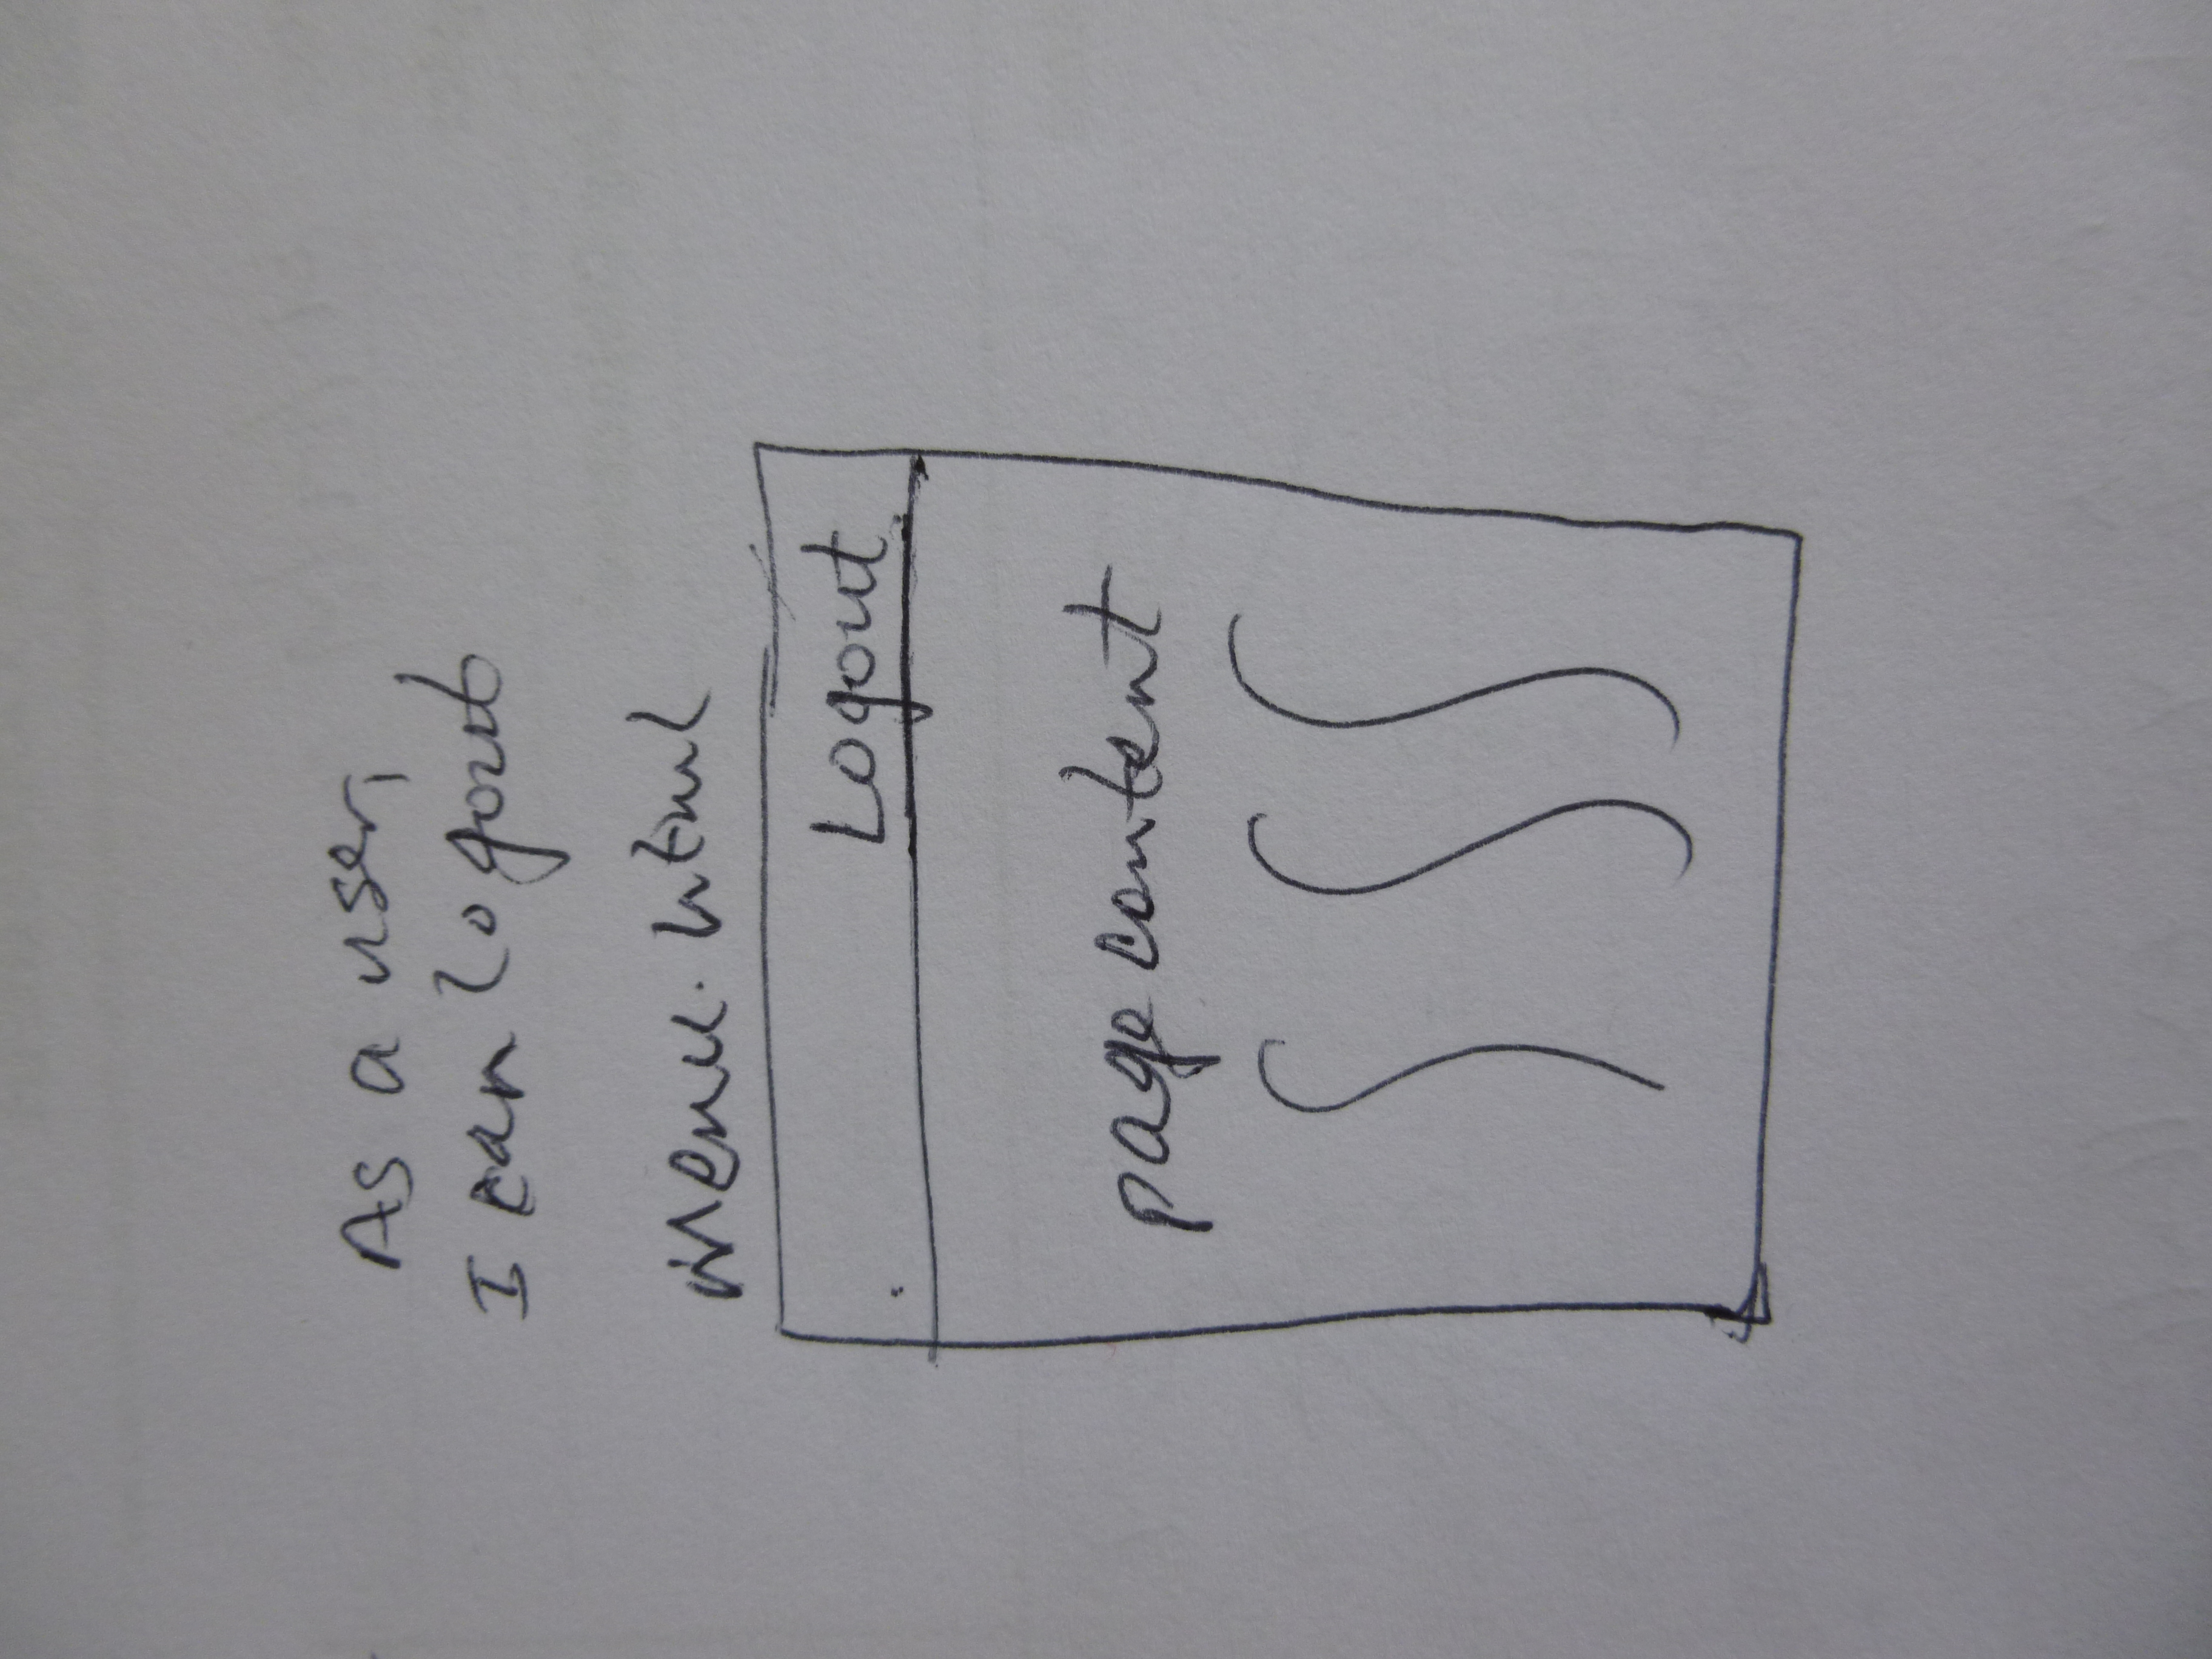 As a user,
I can Logout
menu.html
Logout
page content